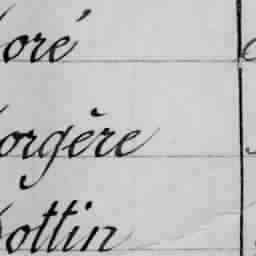 oré
orgère
ottin